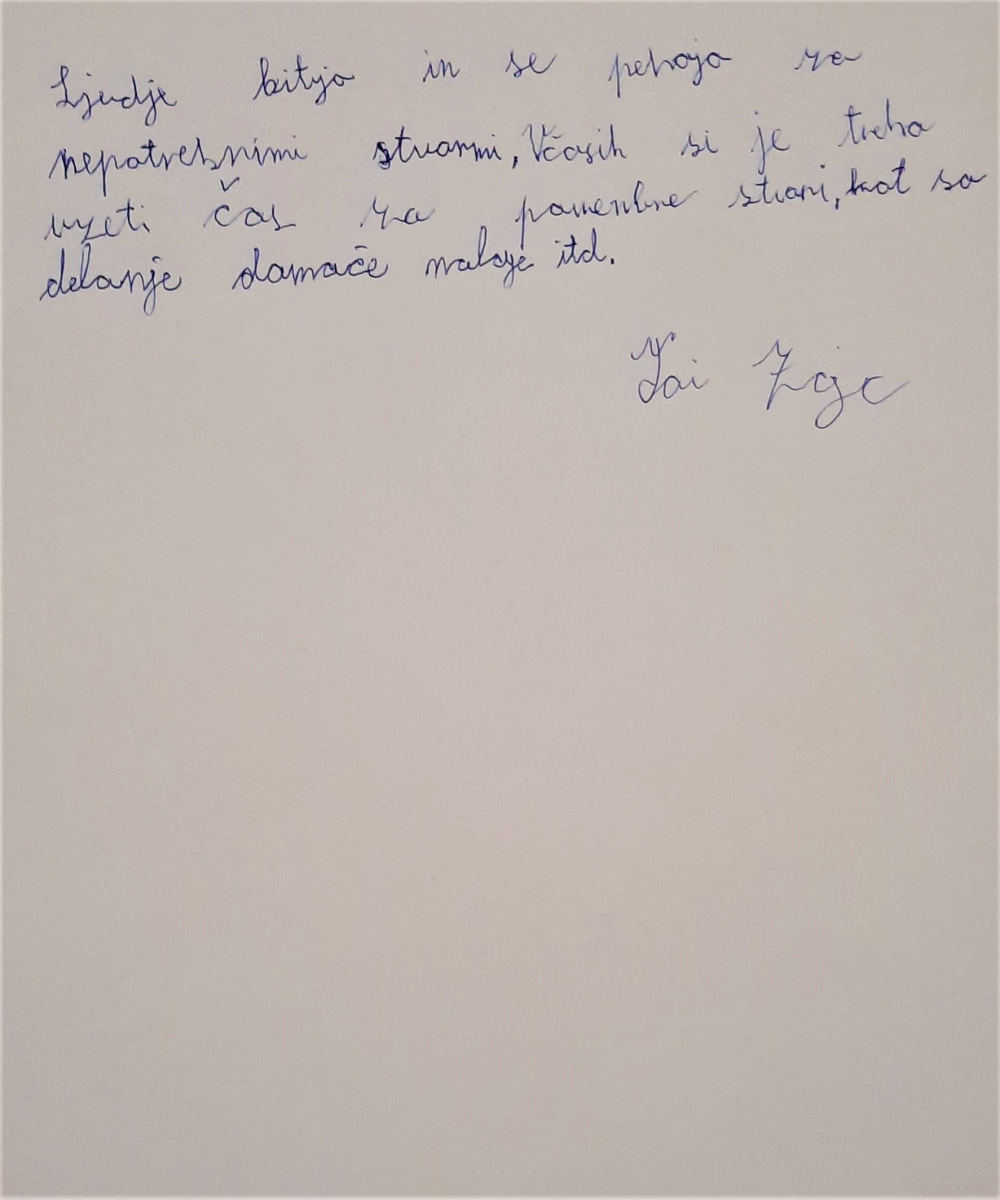 Ljudje hitijo in se pehajo za
nepotrebnimi stvarmi, Včasih si je treba
vzeti čas za pomembne stvari, kot so
delanje domače naloge itd.
Žgc